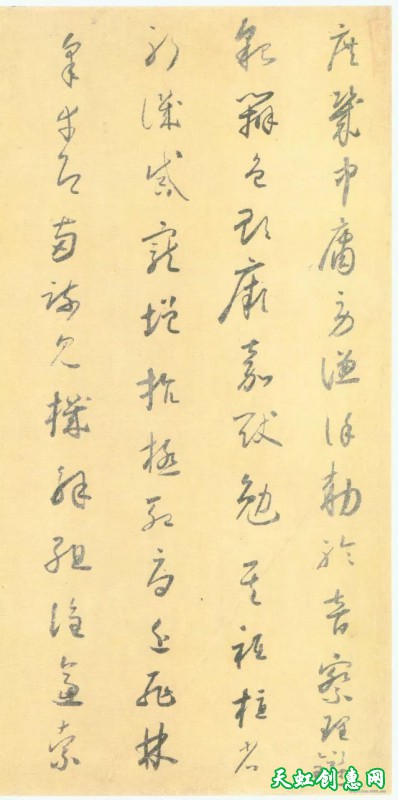 庶幾中庸勞謙謹勅聆音察理鑑
貌辨色貽厥嘉猷勉其祗植省
躬譏誡寵增抗極殆辱近恥林
皋幸即兩疏見機解組誰逼索
天虹创惠网